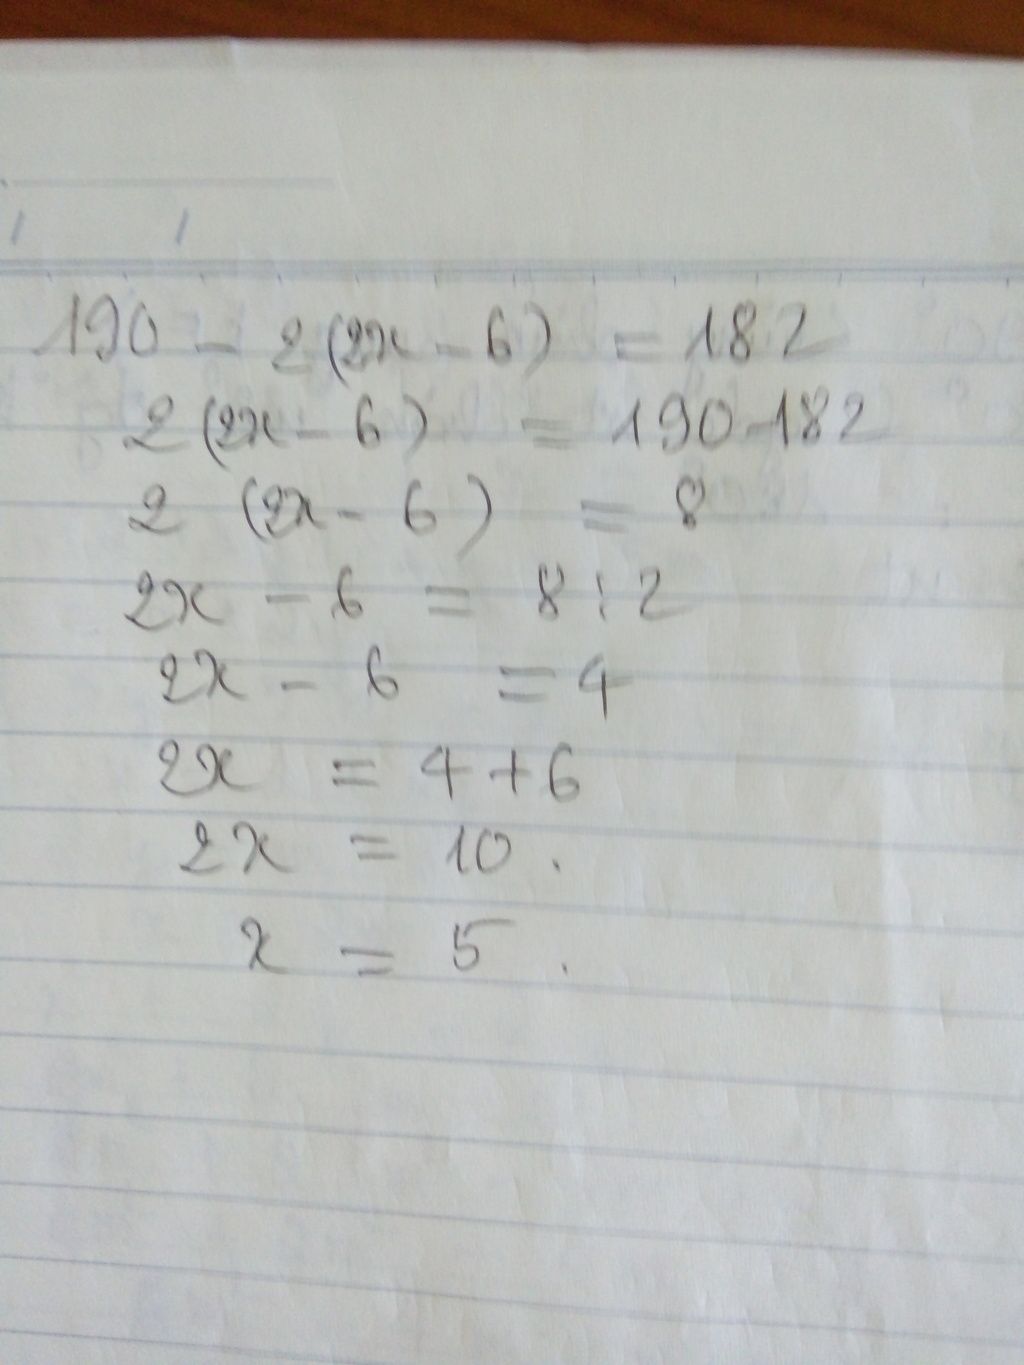 190 - 2(2x - 6) = 182
2(2x - 6) = 190-182
2 (2x - 6) = 8
2x - 6 = 8 : 2
2x - 6 = 4
2x = 4 + 6
2x = 10 .
x = 5 .